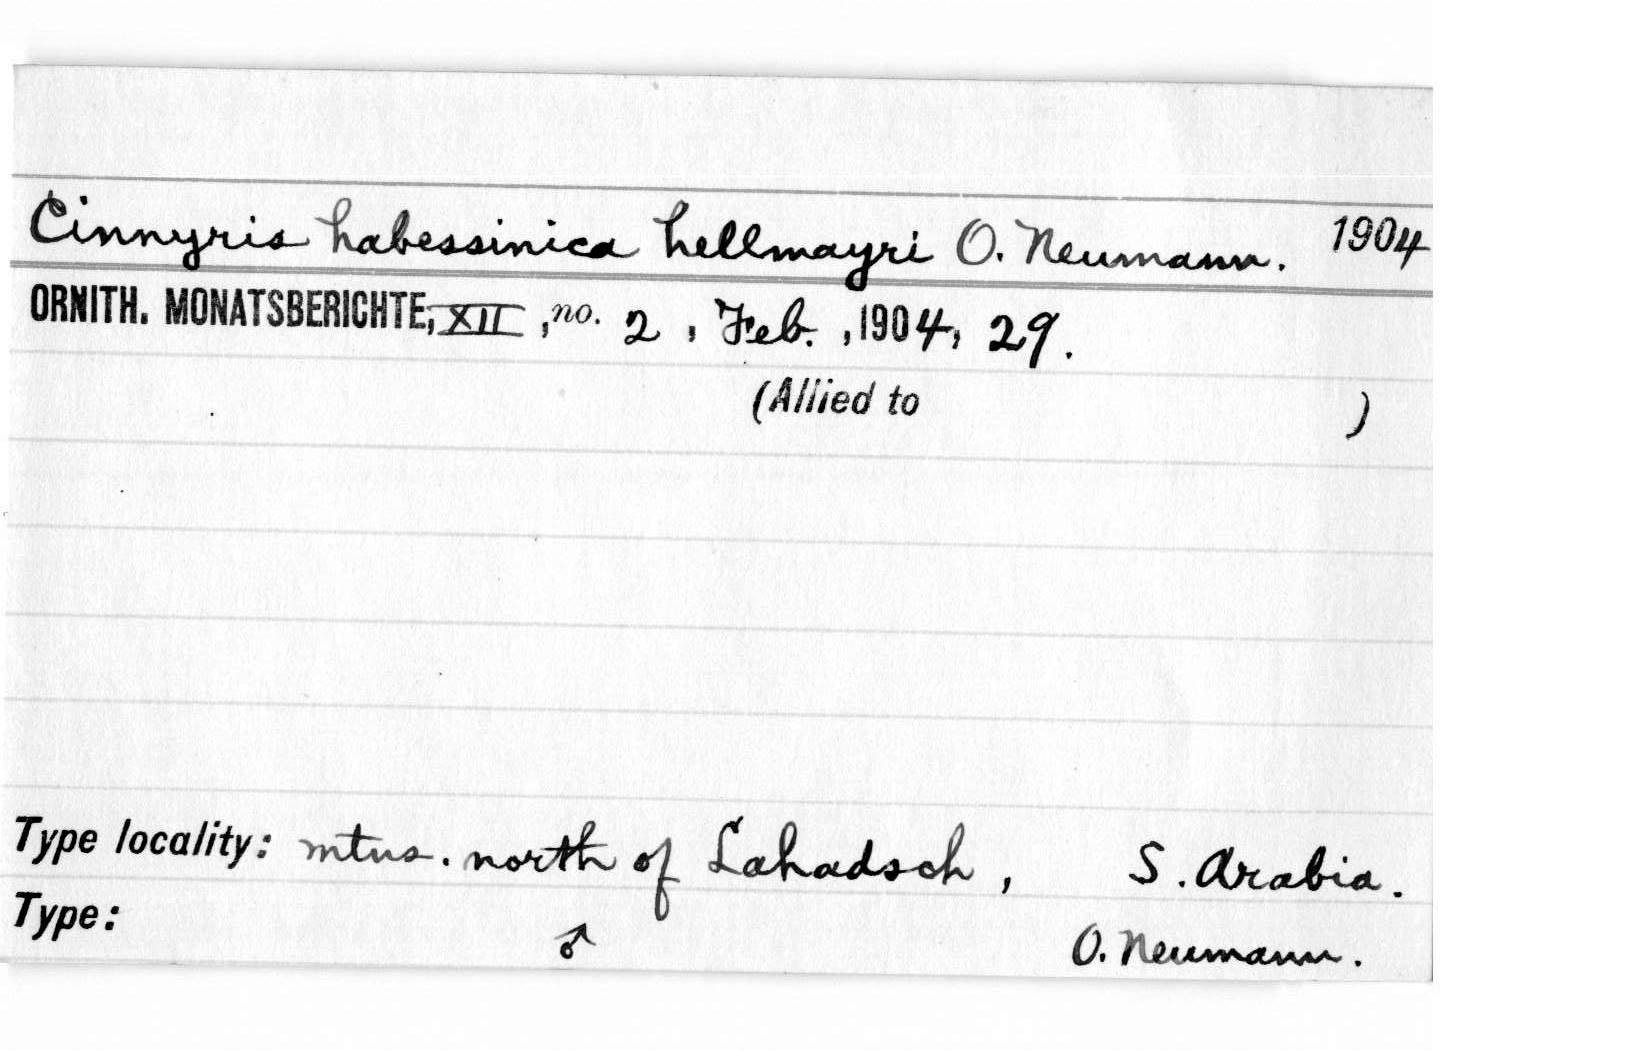 Cinnyris habessinica hellmayri O. Neumann. 1904
ORNITH. MONATSBERICHTE, XII, no. 2, Feb., 1904, 29.
(Allied to )
Type locality: mtns. north of Lahadsch, S. Arabia.
Type: ♂ O. Neumann.